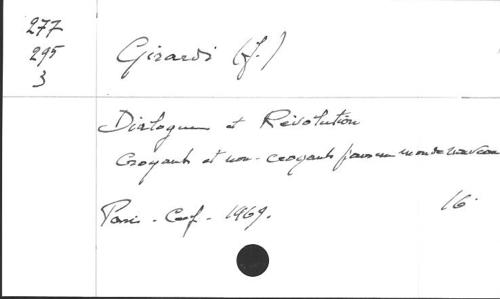 277
295
3
Girardi (J.)
Dialogue et Révolution
Croyants et non-croyants pour un monde nouveau
Paris - Cerf - 1969.
16.